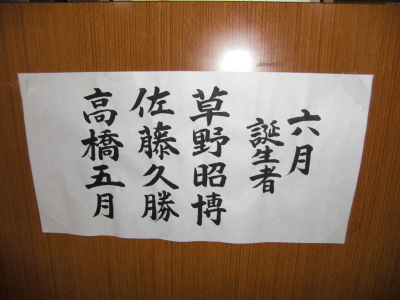 六月
誕生者
草野昭博
佐藤久勝
高橋五月